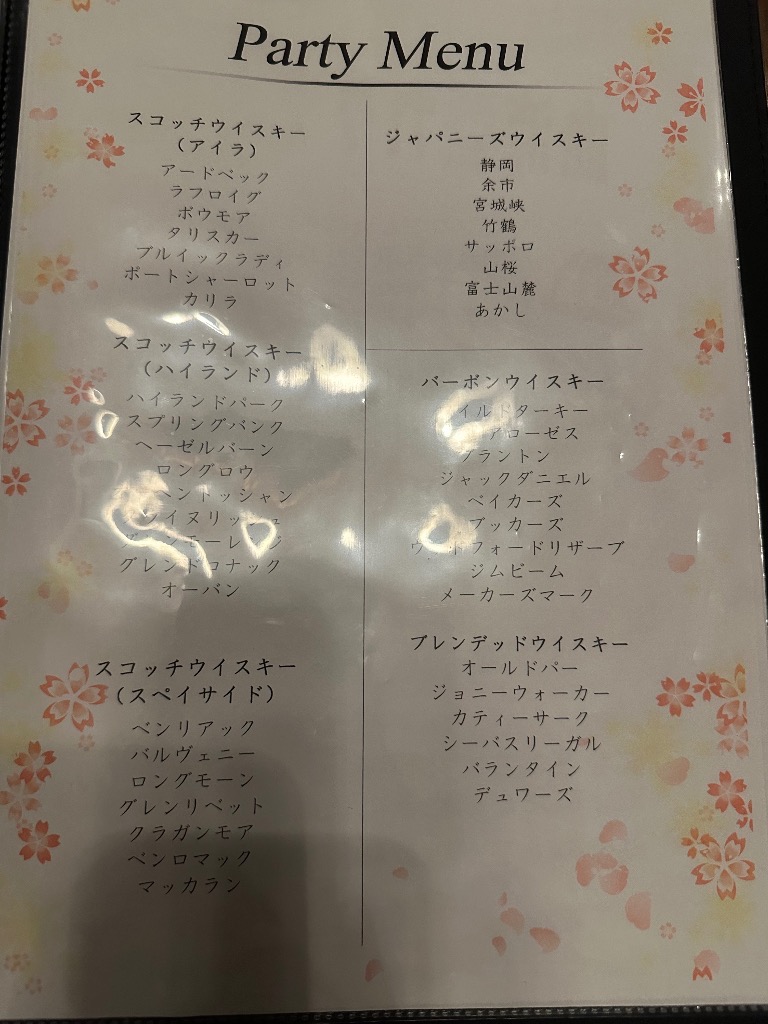 Party Menu
スコッチウイスキー
（アイラ）
アードベック
ラフロイグ
ボウモア
タリスカー
ブルイックラディ
ポートシャーロット
カリラ
スコッチウイスキー
（ハイランド）
ハイランドパーク
スプリングバンク
ヘーゼルバーン
ロングロウ
ヘントッシャン
イヌリッシュ
モーレンジ
グレンドロナック
オーバン
スコッチウイスキー
（スペイサイド）
ベンリアック
バルヴェニー
ロングモーン
グレンリベット
クラガンモア
ベンロマック
マッカラン
ジャパニーズウイスキー
静岡
余市
宮城峡
竹鶴
サッポロ
山桜
富士山麓
あかし
バーボンウイスキー
イルドターキー
アローゼス
ブラントン
ジャックダニエル
ベイカーズ
ブッカーズ
フォードリザーブ
ジムビーム
メーカーズマーク
ブレンデッドウイスキー
オールドパー
ジョニーウォーカー
カティーサーク
シーバスリーガル
バランタイン
デュワーズ